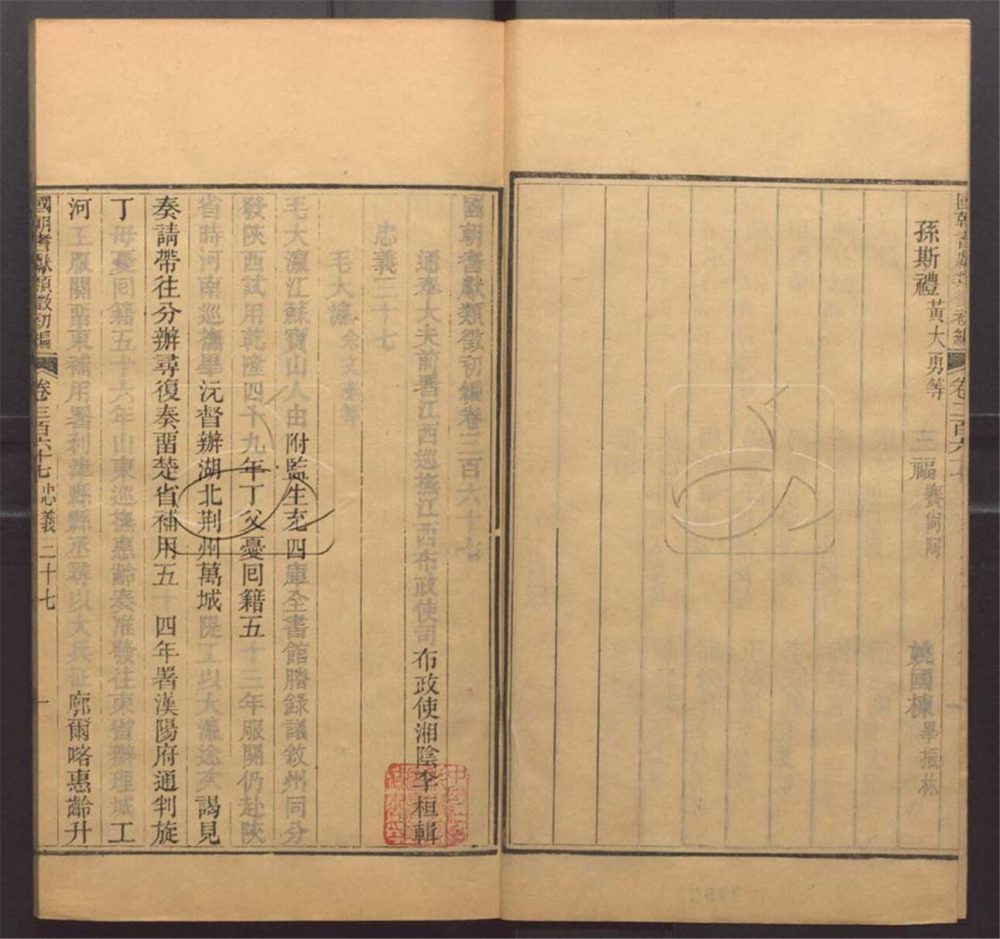 孫斯禮 黃大勇等
三福 賽尚阿
姚國棟 畢振林
國朝耆獻類徵初編卷三百六十七
通奉大夫前署江西巡撫江西布政使司布政使湘陰李桓輯
忠義二十七
毛大瀛 余文等
毛大瀛江蘇寶山人由附監生充四庫全書館謄錄議敘州同分
發陝西試用乾隆四十九年丁父憂囘籍五十三年服闋仍赴陝
省時河南巡撫畢沅督辦湖北荆州萬城隄工以大瀛途次謁見
奏請帶往分辦尋復奏畱楚省補用五十四年署漢陽府通判旋
丁母憂囘籍五十六年山東巡撫惠齡奏准發往東省辦理城工
河工服闋畱東補用署利津縣縣丞尋以大兵征廓爾喀惠齡升
國朝耆獻類徵初編 卷三百六十七 忠義二十七 一